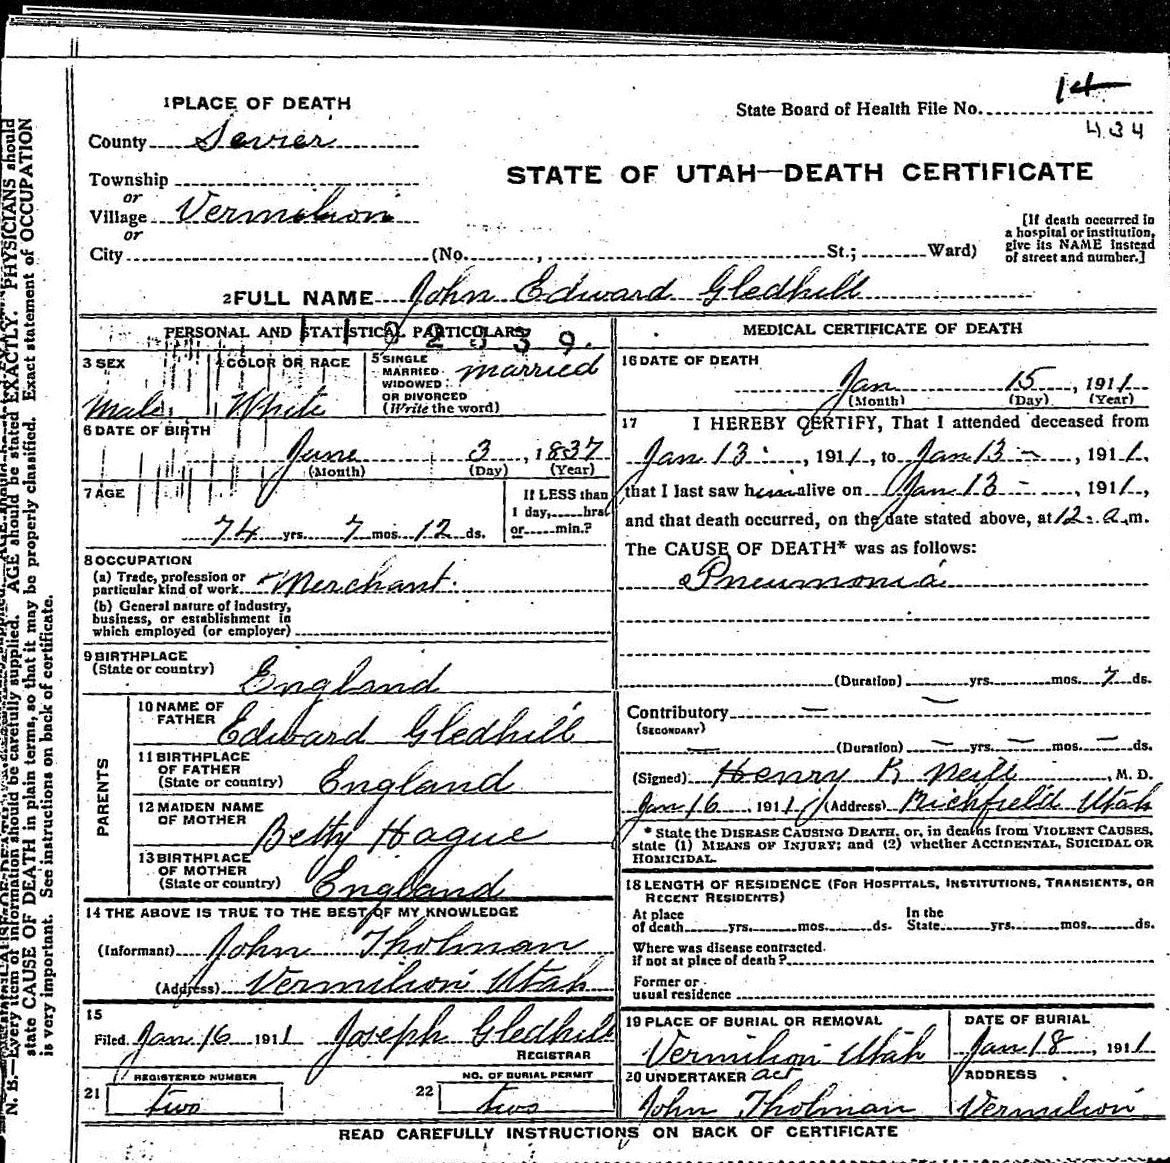 1 PLACE OF DEATH
State Board of Health File No. 14
434
County Sevier
STATE OF UTAH—DEATH CERTIFICATE
Township
or
Village Vermilion
or
City (No. , St.; Ward)
[If death occurred in
a hospital or institution,
give its NAME instead
of street and number.]
2 FULL NAME John Edward Gledhill
PERSONAL AND STATISTICAL PARTICULARS
3 SEX
Male
4 COLOR OR RACE
White
5 SINGLE
MARRIED
WIDOWED
OR DIVORCED
(Write the word)
married
6 DATE OF BIRTH
June 3, 1837
(Month) (Day) (Year)
7 AGE
74 yrs. 7 mos. 12 ds.
If LESS than
1 day, hrs.
or min.?
8 OCCUPATION
(a) Trade, profession or
particular kind of work Merchant.
(b) General nature of industry,
business, or establishment in
which employed (or employer)
9 BIRTHPLACE
(State or country) England
PARENTS
10 NAME OF
FATHER Edward Gledhill
11 BIRTHPLACE
OF FATHER
(State or country) England
12 MAIDEN NAME
OF MOTHER Betty Hague
13 BIRTHPLACE
OF MOTHER
(State or country) England
14 THE ABOVE IS TRUE TO THE BEST OF MY KNOWLEDGE
(Informant) John Tholman
(Address) Vermilion Utah
15
Filed Jan 16 1911 Joseph Gledhill
REGISTRAR
REGISTERED NUMBER
21 two
NO. OF BURIAL PERMIT
22 two
MEDICAL CERTIFICATE OF DEATH
16 DATE OF DEATH
Jan 15, 1911
(Month) (Day) (Year)
17 I HEREBY CERTIFY, That I attended deceased from
Jan 13, 1911, to Jan 13, 1911,
that I last saw him alive on Jan 13, 1911,
and that death occurred, on the date stated above, at 12 a.m.
The CAUSE OF DEATH* was as follows:
Pneumonia
(Duration) yrs. mos. 7 ds.
Contributory
(SECONDARY)
(Duration) yrs. mos. ds.
(Signed) Henry K Neill, M. D.
Jan 16 1911 (Address) Richfield Utah
* State the DISEASE CAUSING DEATH, or, in deaths from VIOLENT CAUSES,
state (1) MEANS OF INJURY; and (2) whether ACCIDENTAL, SUICIDAL OR
HOMICIDAL.
18 LENGTH OF RESIDENCE (FOR HOSPITALS, INSTITUTIONS, TRANSIENTS, OR
RECENT RESIDENTS)
At place
of death yrs. mos. ds.
In the
State yrs. mos. ds.
Where was disease contracted.
if not at place of death?
Former or
usual residence
19 PLACE OF BURIAL OR REMOVAL
Vermilion Utah
DATE OF BURIAL
Jan 18, 1911
20 UNDERTAKER act
John Tholman
ADDRESS
Vermilion
READ CAREFULLY INSTRUCTIONS ON BACK OF CERTIFICATE
N. B.—Every item of information should be carefully supplied. AGE should be stated EXACTLY. PHYSICIANS should
state CAUSE OF DEATH in plain terms, so that it may be properly classified. Exact statement of OCCUPATION
is very important. See instructions on back of certificate.